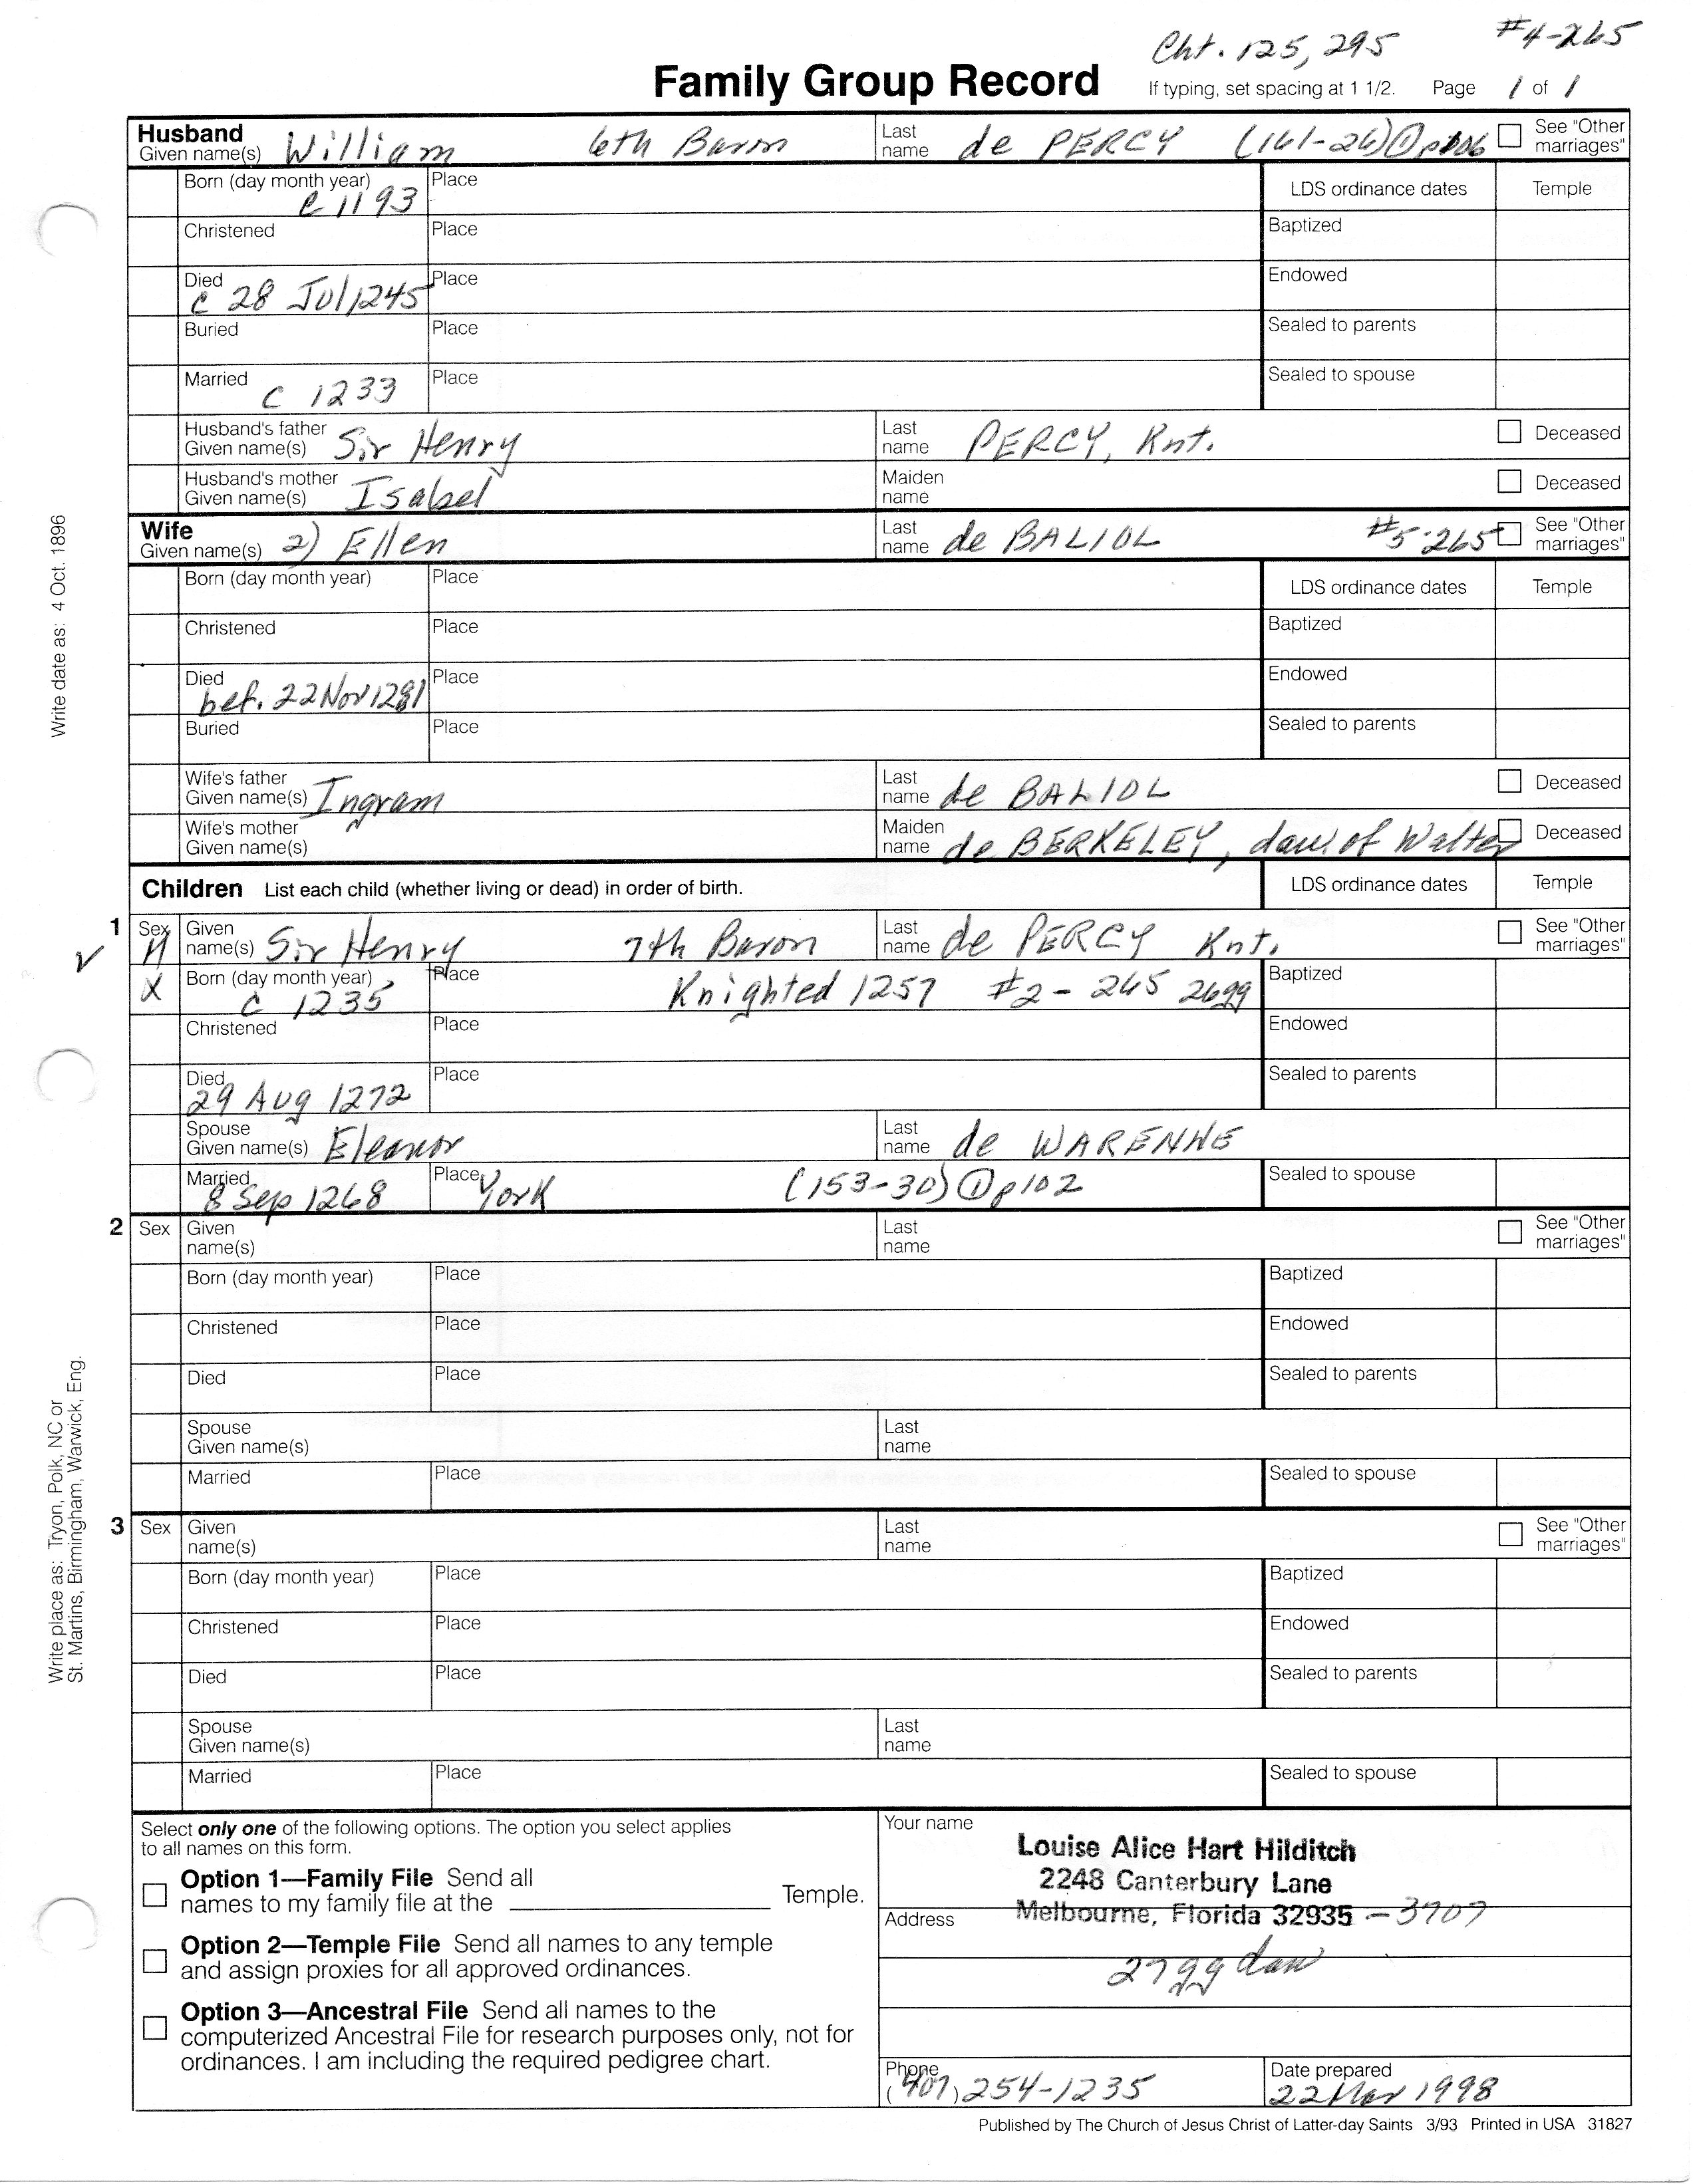 Cht. 125, 295 #4-265
Family Group Record If typing, set spacing at 1 1/2. Page 1 of 1
Husband
Given name(s) William 6th Baron Last name de PERCY (161-26) ① p106 See "Other marriages"
Born (day month year) c 1193 Place LDS ordinance dates Temple
Christened Place Baptized
Died c 28 Jul 1245 Place Endowed
Buried Place Sealed to parents
Married c 1233 Place Sealed to spouse
Husband's father Given name(s) Sir Henry Last name PERCY, Knt. Deceased
Husband's mother Given name(s) Isabel Maiden name Deceased
Wife
Given name(s) 2) Ellen Last name de BALIOL #5-265 See "Other marriages"
Born (day month year) Place LDS ordinance dates Temple
Christened Place Baptized
Died bef. 22 Nov 1281 Place Endowed
Buried Place Sealed to parents
Wife's father Given name(s) Ingram Last name de BALIOL Deceased
Wife's mother Given name(s) Maiden name de BERKELEY, dau of Walter Deceased
Children List each child (whether living or dead) in order of birth. LDS ordinance dates Temple
1 Sex M Given name(s) Sir Henry 7th Baron Last name de PERCY Knt. See "Other marriages"
X Born (day month year) c 1235 Place Knighted 1257 #2-265 26gg Baptized
Christened Place Endowed
Died 29 Aug 1272 Place Sealed to parents
Spouse Given name(s) Eleanor Last name de WARENNE
Married 8 Sep 1268 Place York (153-30) ① p102 Sealed to spouse
2 Sex Given name(s) Last name See "Other marriages"
Born (day month year) Place Baptized
Christened Place Endowed
Died Place Sealed to parents
Spouse Given name(s) Last name
Married Place Sealed to spouse
3 Sex Given name(s) Last name See "Other marriages"
Born (day month year) Place Baptized
Christened Place Endowed
Died Place Sealed to parents
Spouse Given name(s) Last name
Married Place Sealed to spouse
Select only one of the following options. The option you select applies
to all names on this form.
Option 1—Family File Send all
names to my family file at the Temple.
Option 2—Temple File Send all names to any temple
and assign proxies for all approved ordinances.
Option 3—Ancestral File Send all names to the
computerized Ancestral File for research purposes only, not for
ordinances. I am including the required pedigree chart.
Your name
Louise Alice Hart Hilditch
2248 Canterbury Lane
Address Melbourne, Florida 32935 -3707
27gg dau
Phone (407) 254-1235
Date prepared 22 Mar 1998
Published by The Church of Jesus Christ of Latter-day Saints 3/93 Printed in USA 31827
Write date as: 4 Oct. 1896
Write place as: Tryon, Polk, NC or
St. Martins, Birmingham, Warwick, Eng.